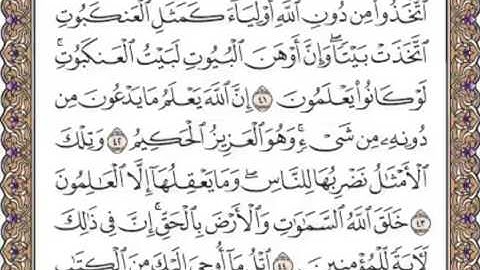 ٱتَّخَذُوا۟ مِن دُونِ ٱللَّهِ أَوْلِيَآءَ كَمَثَلِ ٱلْعَنكَبُوتِ
ٱتَّخَذَتْ بَيْتًا ۖ وَإِنَّ أَوْهَنَ ٱلْبُيُوتِ لَبَيْتُ ٱلْعَنكَبُوتِ ۚ
لَوْ كَانُوا۟ يَعْلَمُونَ ٤١ إِنَّ ٱللَّهَ يَعْلَمُ مَا يَدْعُونَ مِن
دُونِهِۦ مِن شَىْءٍ ۚ وَهُوَ ٱلْعَزِيزُ ٱلْحَكِيمُ ٤٢ وَتِلْكَ
ٱلْأَمْثَٰلُ نَضْرِبُهَا لِلنَّاسِ ۖ وَمَا يَعْقِلُهَآ إِلَّا ٱلْعَٰلِمُونَ
٤٣ خَلَقَ ٱللَّهُ ٱلسَّمَٰوَٰتِ وَٱلْأَرْضَ بِٱلْحَقِّ ۚ إِنَّ فِى ذَٰلِكَ
لَءَايَةً لِّلْمُؤْمِنِينَ ٤٤ ٱتْلُ مَآ أُوحِىَ إِلَيْكَ مِنَ ٱلْكِتَٰبِ